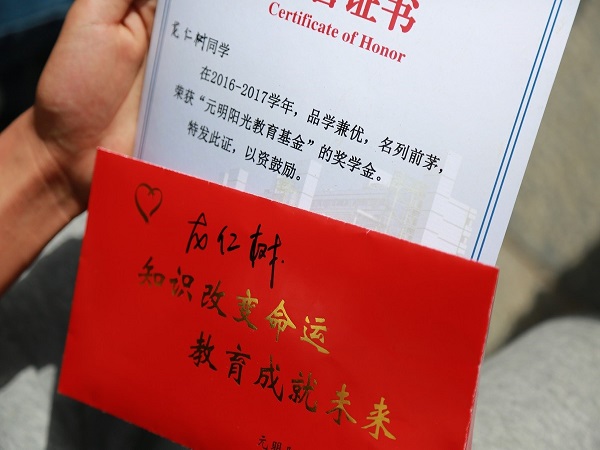 证书
Certificate of Honor
仁树同学
在2016-2017学年，品学兼优，名列前茅，
荣获“元明阳光教育基金”的奖学金。
特发此证，以资鼓励。
仁树
知识改变命运
教育成就未来
元明